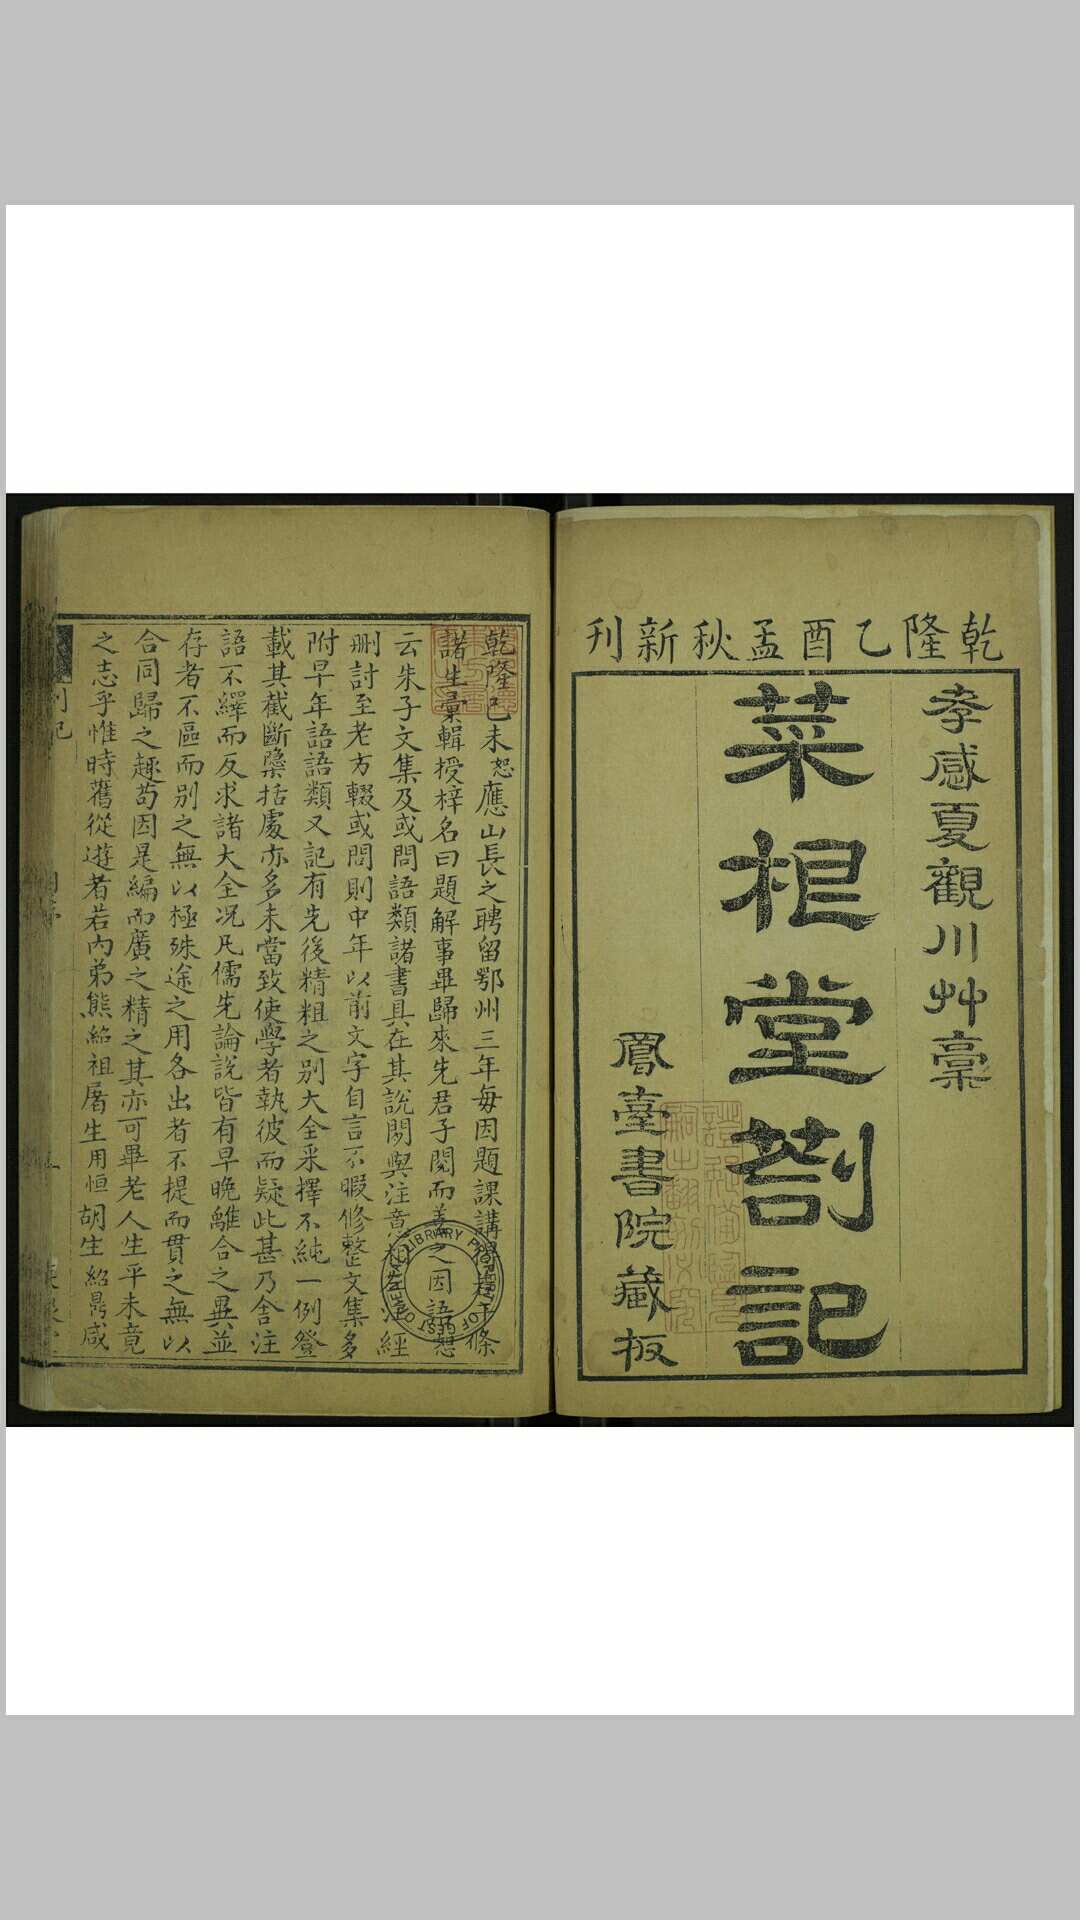 乾隆乙酉孟秋新刊
孝感夏觀川艸稾
菜根堂劄記
鳳臺書院藏板
乾隆己未恕應山長之聘留鄂州三年每因題課講條
諸生彙輯授梓名曰題解事畢歸來先君子閱而善之因語恕
云朱子文集及或問語類諸書具在其說閒與注意經
刪討至老方輟或問則中年以前文字自言不暇修整文集多
附早年語語類又記有先後精粗之别大全采擇不純一例登
載其截斷櫽括處亦多未當致使學者執彼而疑此甚乃舍注
語不繹而反求諸大全况凡儒先論說皆有早晚離合之異並
存者不區而别之無以極殊途之用各出者不提而貫之無以
合同歸之趣苟因是編而廣之精之其亦可畢老人生平未竟
之志乎惟時舊從遊者若內弟熊紹祖屠生用恒胡生紹鼎咸
劄記
LIBRARY